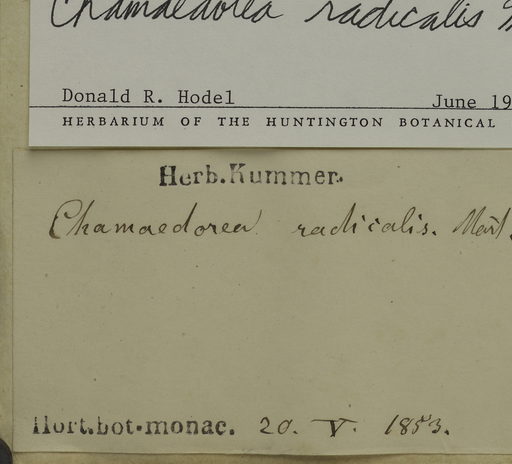 Chamaedorea radicalis
Donald R. Hodel June 19
HERBARIUM OF THE HUNTINGTON BOTANICAL
Herb.Kummer.
Chamaedorea radicalis. Mart.
Hort.bot.monac. 20. V. 1853.